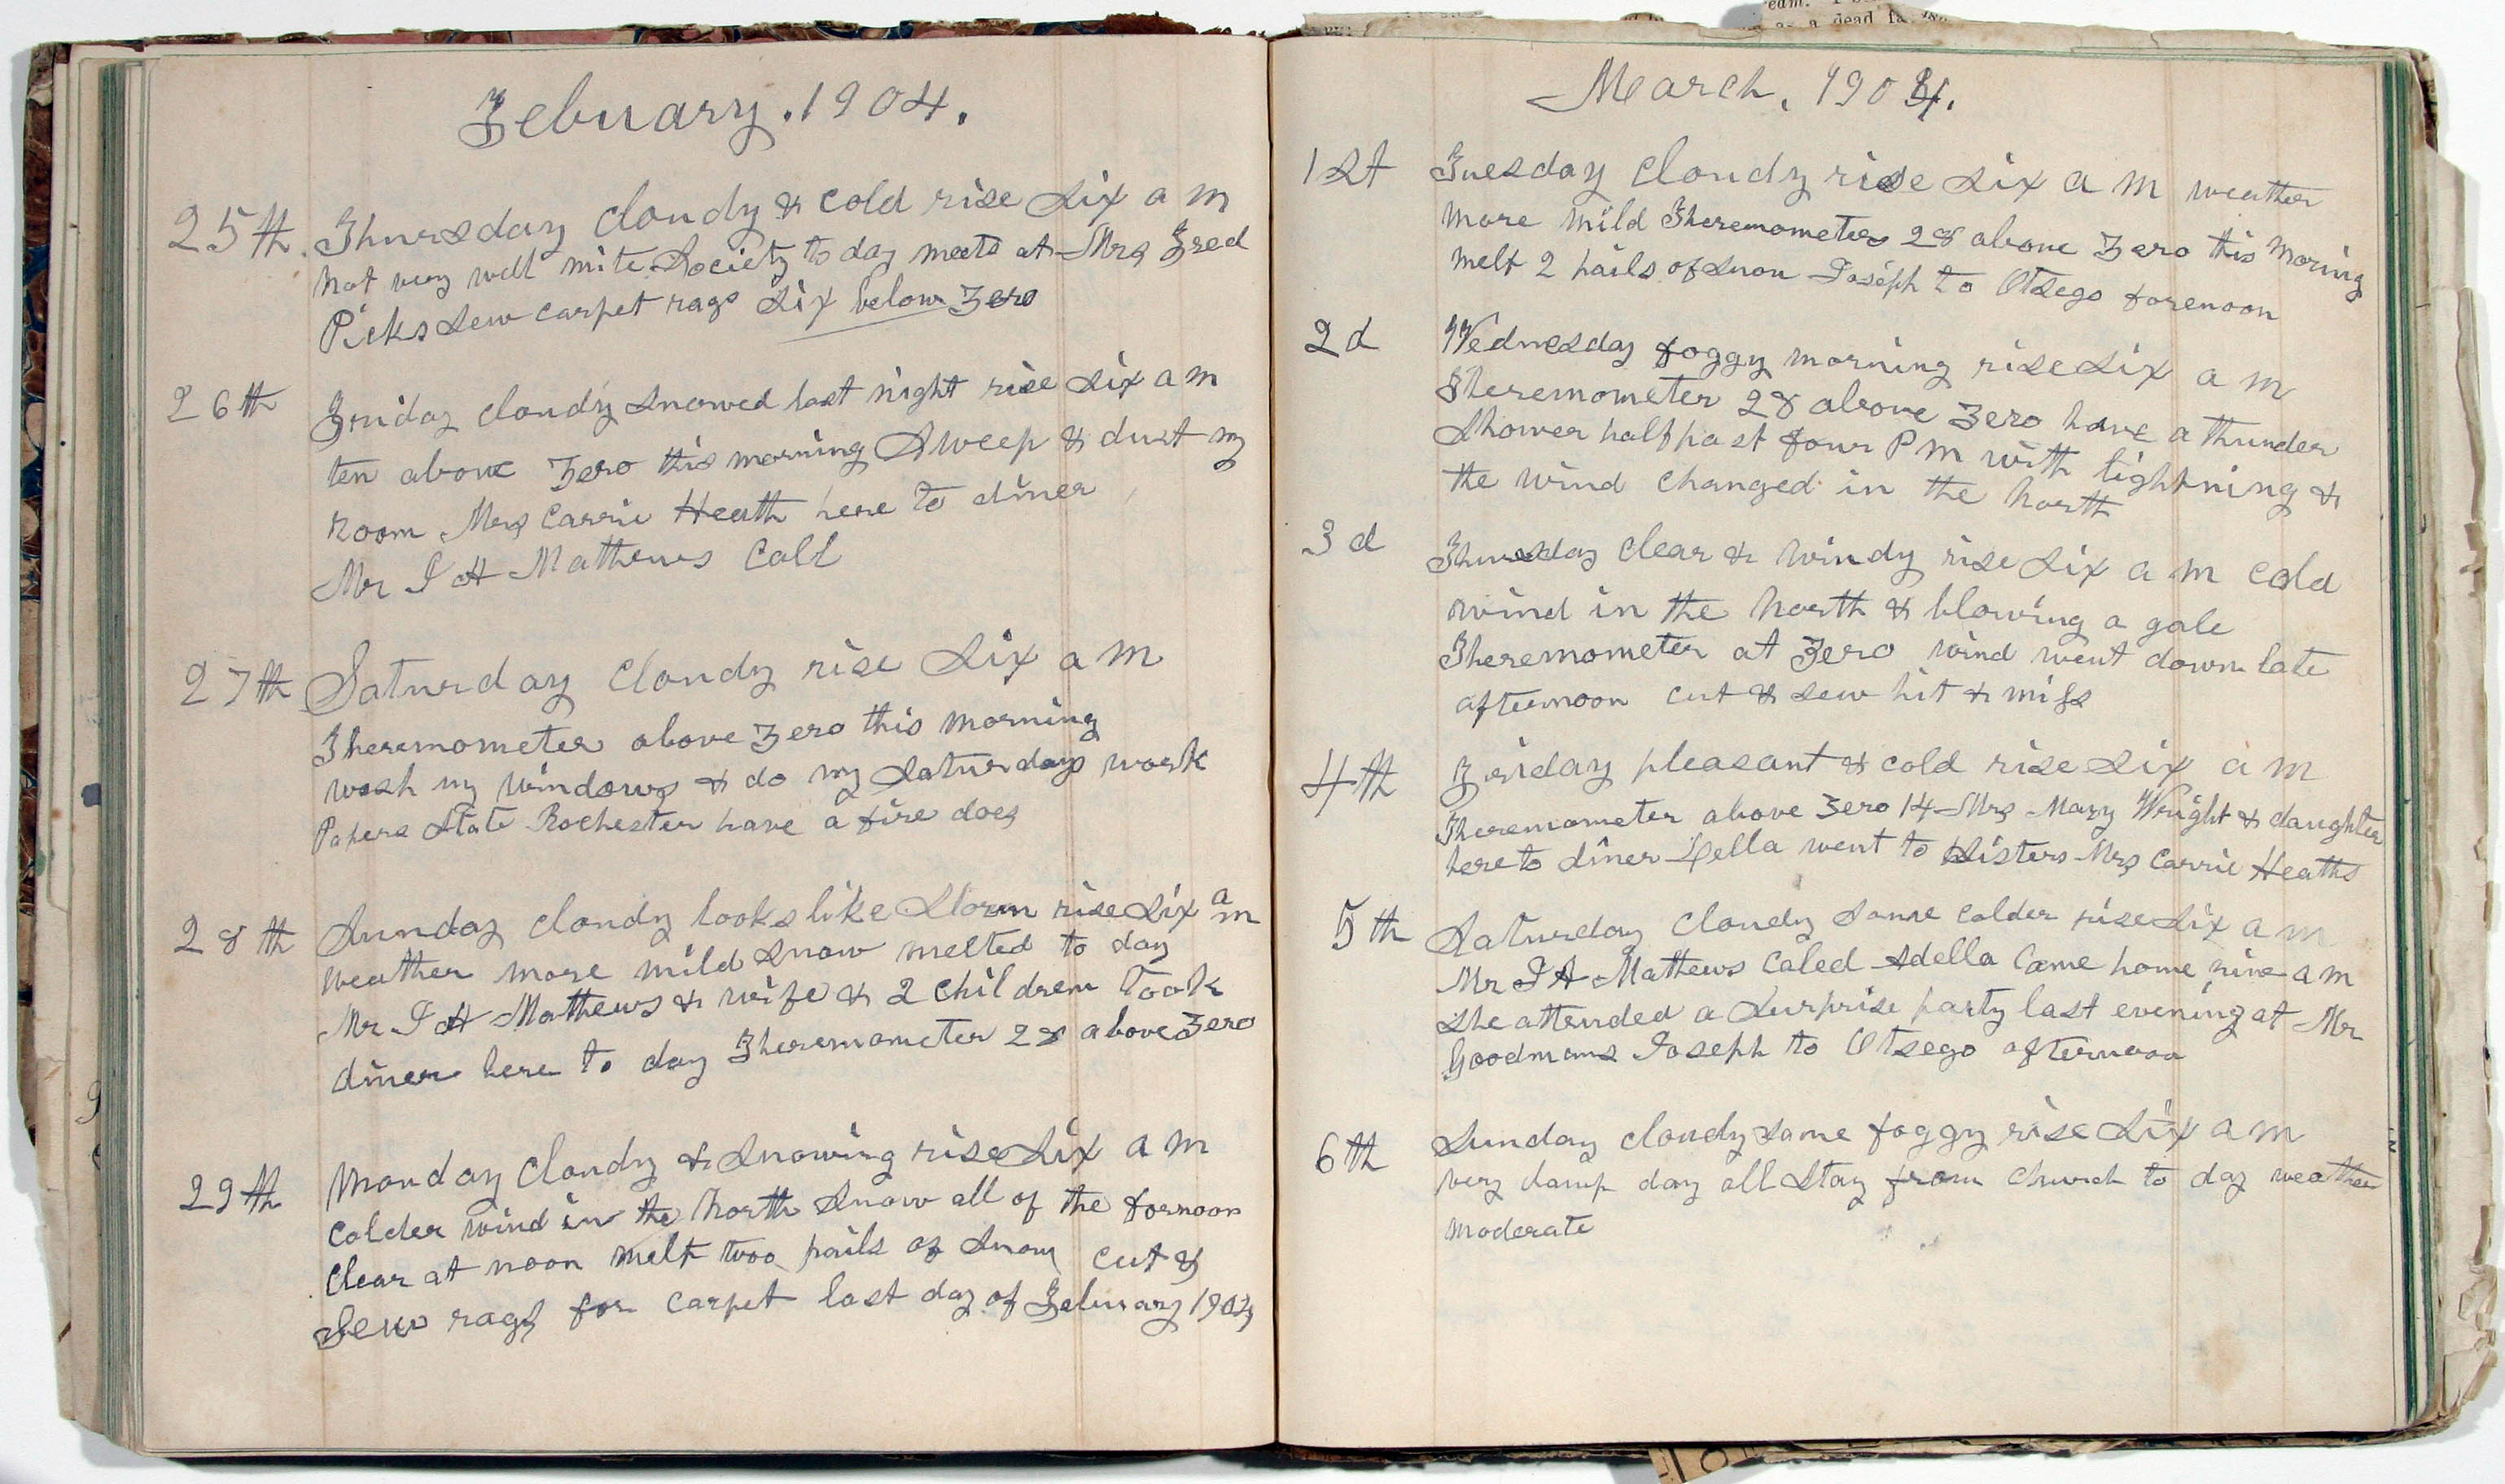 Febuary. 1904.
25th. Thursday cloudy & cold rise six a m
not very well mite Society to day meets at Mrs Fred
Picks sew carpet rags six below Zero
26th Friday cloudy snowed last night rise six a m
ten above Zero this morning Sweep & dust my
room Mrs Carrie Heath here to diner
Mr I H Mathews Call
27th Saturday cloudy rise six a m
Theremometer above Zero this morning
wash my windows & do my Saturdays work
Papers State Rochester have a fire does
28th Sunday cloudy looks like storm rise six a m
weather more mild snow melted to day
Mr I H Mathews & wife & 2 children took
diner here to day Theremometer 28 above Zero
29th Monday cloudy & snowing rise six a m
colder wind in the North snow all of the fornoon
clear at noon melt two pails of snow cut &
sew rags for carpet last day of Febuary 1904
March. 1904.
1st Tuesday cloudy rise six a m weather
more mild Theremometer 28 above Zero this moring
melt 2 pails of snow Joseph to Otsego forenoon
2d Wednesday foggy morning rise six a m
Theremometer 28 above Zero have a thunder
shower half past four P m with lightning &
the wind changed in the North
3d Thursday clear & windy rise six a m cold
wind in the North & blowing a gale
Theremometer at Zero wind went down late
afternoon cut & sew hit & miss
4th Friday pleasant & cold rise six a m
Theremometer above Zero 14 Mrs Mary Wright & daughter
here to diner Della went to sisters Mrs Carrie Heaths
5th Saturday cloudy some colder rise six a m
Mr I H Mathews caled Adella came home nine a m
she attended a surprise party last evening at Mr
Goodmans Joseph to Otsego afternoon
6th Sunday cloudy some foggy rise six a m
very damp day all stay from church to day weather
moderate